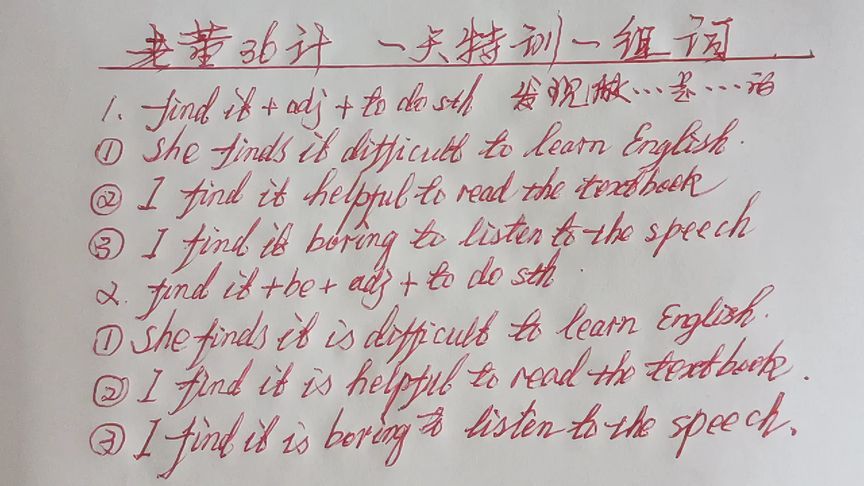 老董36计 一天特训一组词
1. find it + adj + to do sth 发现做…是…的
① She finds it difficult to learn English.
② I find it helpful to read the textbook
③ I find it boring to listen to the speech
2. find it + be + adj + to do sth.
① She finds it is difficult to learn English.
② I find it is helpful to read the textbook.
③ I find it is boring to listen to the speech.